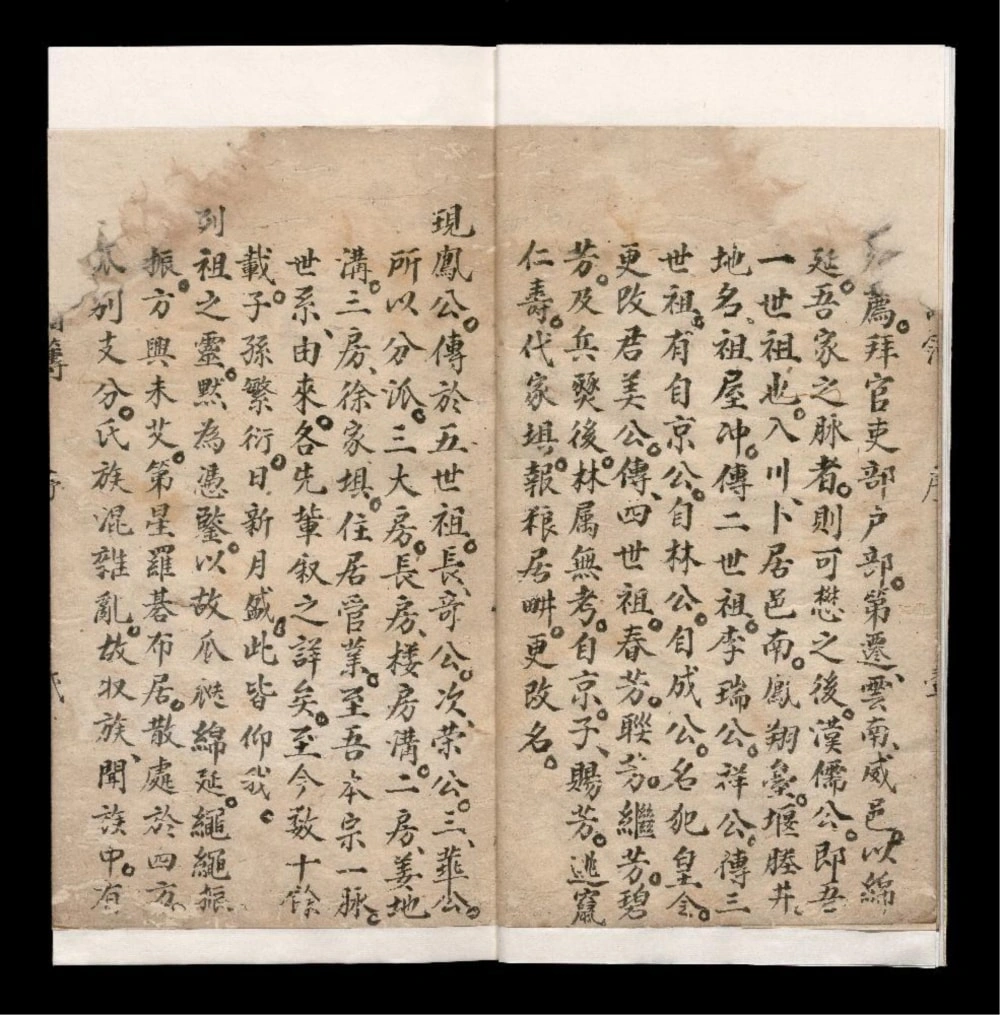 薦。拜官吏部户部。第遷、雲南、威邑。以綿
延。吾家之脉者。則可懋之後。漢儒公。即吾
一世祖也。入川、卜居邑南。鳳翔臺。堰塍井。
地名。祖屋冲。傳二世祖。李瑞公。祥公。傳三
世祖。有自京公。自林公。自成公。名犯皇令。
更改君美公。傳、四世祖。春芳。聯芳。繼芳。碧
芳。及兵燹後。林属無考。自京子、賜芳。逃竄
仁壽。代家埧。報粮居畊。更改名。
現鳳公。傳於五世祖。長、奇公。次、荣公。三、華公。
所以分派。三大房。長房、楼房溝。二房、姜地
溝。三房、徐家埧。住居管業。至吾本宗一脉。
世系、由來。各先輩叙之詳矣。至今数十餘
載。子孫繁衍。日新月盛。此皆仰我。
列祖之靈。黙為憑鑒。以故瓜瓞綿延。繩繩振
振。方興未艾。第星羅碁布居。散處於四方。
派别支分。氏族混雜亂。故収族、聞族中。有